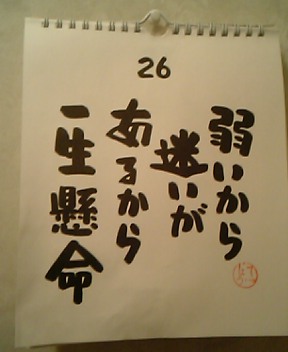 26
弱いから
迷いが
あるから
一生懸命